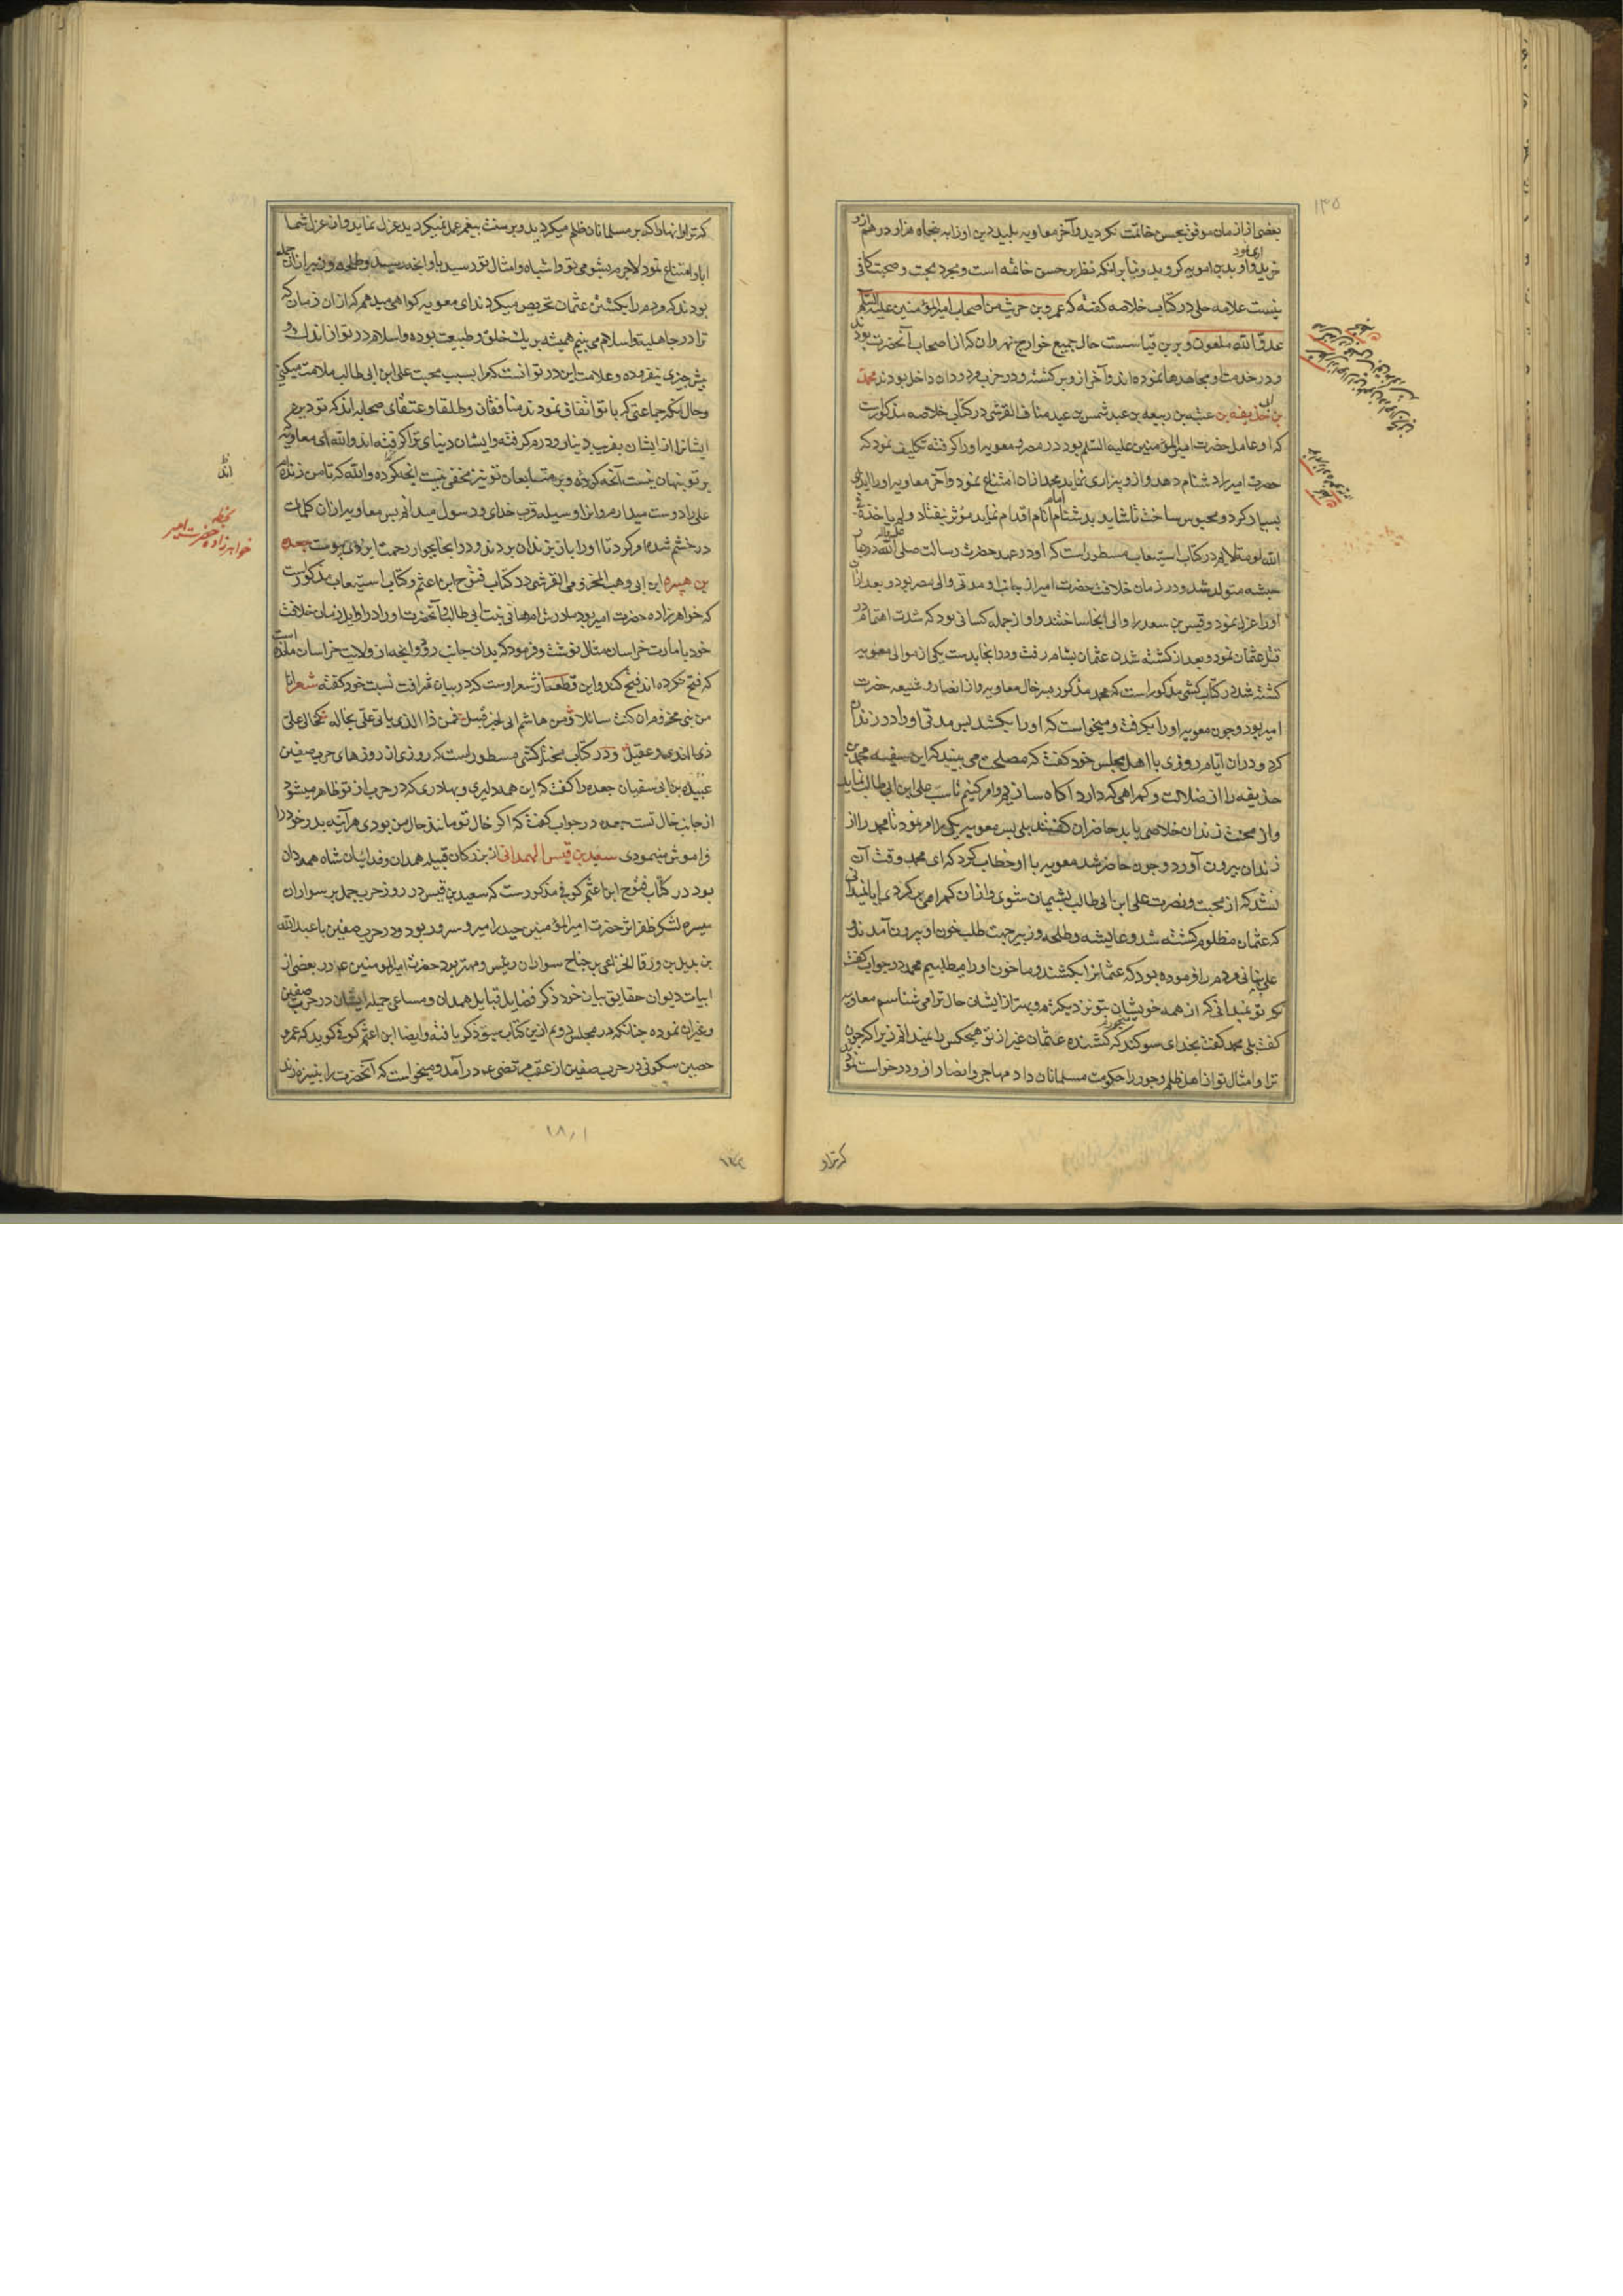 بعضی از ازمان موفق بحسن خاتمت نکردید و آخر معاویه پلید دین او را به پنجاه هزار درهم ازو
خرید و او بدین امویه کروید و بنابر آنکه نظر بر حسن خاتمه است و مجرد محبت و صحبت کافی
نیست علامه حلی در کتاب خلاصه کفته که عمرو بن حریث من اصحاب امیرالمؤمنین علیه السلم
عدو الله ملعون و برین قیاسست حال جمیع خوارج نهروان که از اصحاب آنحضرت بودند
و در خدمت او مجاهدها نموده اند و آخر ازو برکشته و در حزب مردودان داخل بودند محمد
بن ابی حذیفه بن عتبه بن ربیعه بن عبد شمس بن عبد مناف القرشی در کتاب خلاصه مذکورست
که او عامل حضرت امیرالمؤمنین علیه السلم بود در مصر و معویه او را کرفته تکلیف نمود که
حضرت امیر را دشنام دهد و ازو بیزاری نماید محمد از ان امتناع نمود و آخر معاویه او را ایذای
بسیار کرد و محبوس ساخت تا شاید بدشنام امام انام اقدام نماید مؤثر نیفتاد و لم یاخذه فی
الله لومة لایم در کتاب استیعاب مسطور است که او در عهد حضرت رسالت صلی الله علیه و اله در دیار
حبشه متولد شد و در زمان خلافت حضرت امیر از جانب او مدتی والی مصر بود و بعد از ان
او را عزل نمود و قیس بن سعد را والی انجا ساختند و او از جمله کسانی بود که شدت اهتمام در
قتل عثمان نمود و بعد از کشته شدن عثمان بشام رفت و در انجا بدست یکی از موالی معویه
کشته شد در کتاب کشی مذکور است که محمد مذکور پسر خال معاویه و از انصار و شیعه حضرت
امیر بود و چون معویه او را بکرفت و میخواست که او را بکشد پس مدتی او را در زندان
کرد و دران ایام روزی با اهل مجلس خود کفت که مصلحت می بینید که این سفیه محمد بن
حذیفه را از ضلالت و کمراهی که دارد آکاه سازیم و امر کنیم تا سب علی ابن ابی طالب نماید
و از محنت زندان خلاصی یابد حاضران کفتند بلی پس معویه یکی را امر نمود تا محمد را از
زندان بیرون آورد و چون حاضر شد معویه با او خطاب کرد که ای محمد وقت آن
نشد که از محبت و نصرت علی ابن ابی طالب پشیمان شوی و از ان کمراهی برکردی ایا نمیدانی
که عثمان مظلوم کشته شد و عایشه و طلحه و زبیر جهت طلب خون او بیرون آمدند و
علی پنهانی مردم را فرموده بود که عثمان را بکشند و ما خون او را میطلبیم محمد در جواب کفت
که تو میدانی که از همه خویشان بتو نزدیکترم و بهتر از ایشان حال ترا می شناسم معاویه
کفت بلی محمد کفت بخدای سوکند که کشنده عثمان غیر از تو هیچکس را نمیدانم زیرا که چون
ترا و امثال ترا از اهل ظلم و جور را حکومت مسلمانان داد مهاجر و انصار ازو درخواست نمودند
که ترا و
که ترا و انها را که بر مسلمانان ظلم میکردید و بر سنت پیغمبر عمل نمیکردید عزل نماید و از عزل شما
ابا و امتناع نمود لاجرم بشومی تو و اشباه و امثال تو رسید باو انچه رسید و طلحه و زبیر از ان جمله
بودند که مردم را بکشتن عثمان تحریص میکردند ای معویه کواهی میدهم که از ان زمان که
ترا در جاهلیت و اسلام می بینم همیشه بر یک خلق و طبیعت بوده و اسلام در تو از اندک و
بیش چیزی نیفزوده و علامت این در تو انست که مرا بسبب محبت علی ابن ابی طالب ملامت میکنی
و حال آنکه جماعتی که با تو اتفاق نمودند منافقان و طلقا و عتقای صحابه اند که تو دین
ایشانرا از ایشان بفریب دینار و درم کرفته و ایشان دنیای ترا کرفته اند و الله ای معاویه
بر تو پنهان نیست آنچه کرده و بر متابعان تو نیز مخفی نیست انچه کرده و الله که تا من زنده ام
علی را دوست میدارم و انرا وسیله قرب خدای و رسول میدانم پس معاویه از ان کلمات
در خشم شده امر کرد تا او را باز بزندان بردند و در انجا بجوار رحمت ایزدی پیوست جعده
بن هبیره ابن ابی وهب المخزومی القرشی در کتاب فتوح ابن اعثم و کتاب استیعاب مذکور است
که خواهرزاده حضرت امیر بود مادرش ام هانی بنت ابی طالب و آنحضرت او را در اوایل زمان خلافت
خود بامارت خراسان مثال نوشت و فرمود که بدان جانب رو و انچه از ولایت خراسان مانده است
که فتح نکرده اند فتح کند و این قطعه از شعر اوست که در بیان شرافت نسبت خود کفته شعر انا
من بنی مخزوم ان کنت سائلا و من هاشم امی لخیر قبیل فمن ذا الذی یاتی علی بخاله کخالی علی
ذی الندی و عقیل و در کتاب مختار کشی مسطور است که روزی از روزهای حرب صفین
عتبة بن ابی سفیان جعده را کفت که این همه دلیری و بهادری که در حرب از تو ظاهر میشود
از جانب خال تست جعده در جواب کفت که اکر خال تو مانند خال من بودی هرآینه پدر خود را
فراموش مینمودی سعید بن قیس الهمدانی از بزرکان قبیله همدان و فدائیان شاه همه دان
بود در کتاب فتوح ابن اعثم کوفی مذکورست که سعید بن قیس در روز حرب جمل بر سواران
میسره لشکر ظفر اثر حضرت امیرالمؤمنین حیدر امیر و سرور بود و در حرب صفین با عبدالله
بن بدیل بن ورقا الخزاعی بر جناح سواران رئیس و مهتر بود حضرت امیرالمومنین ع در بعضی از
ابیات دیوان حقایق بیان خود ذکر فضایل قبایل همدان و مساعی جمیله ایشان در حرب صفین
و غیران نموده چنانکه در مجلس دویم ازین کتاب سبق ذکر یافته و ایضا ابن اعثم کوفی کوید که عمرو
حصین سکونی در حرب صفین از عقب مرتضی ع در آمد و میخواست که آنحضرت را بنیزه زند
جعده
خواهرزاده حضرت امیر